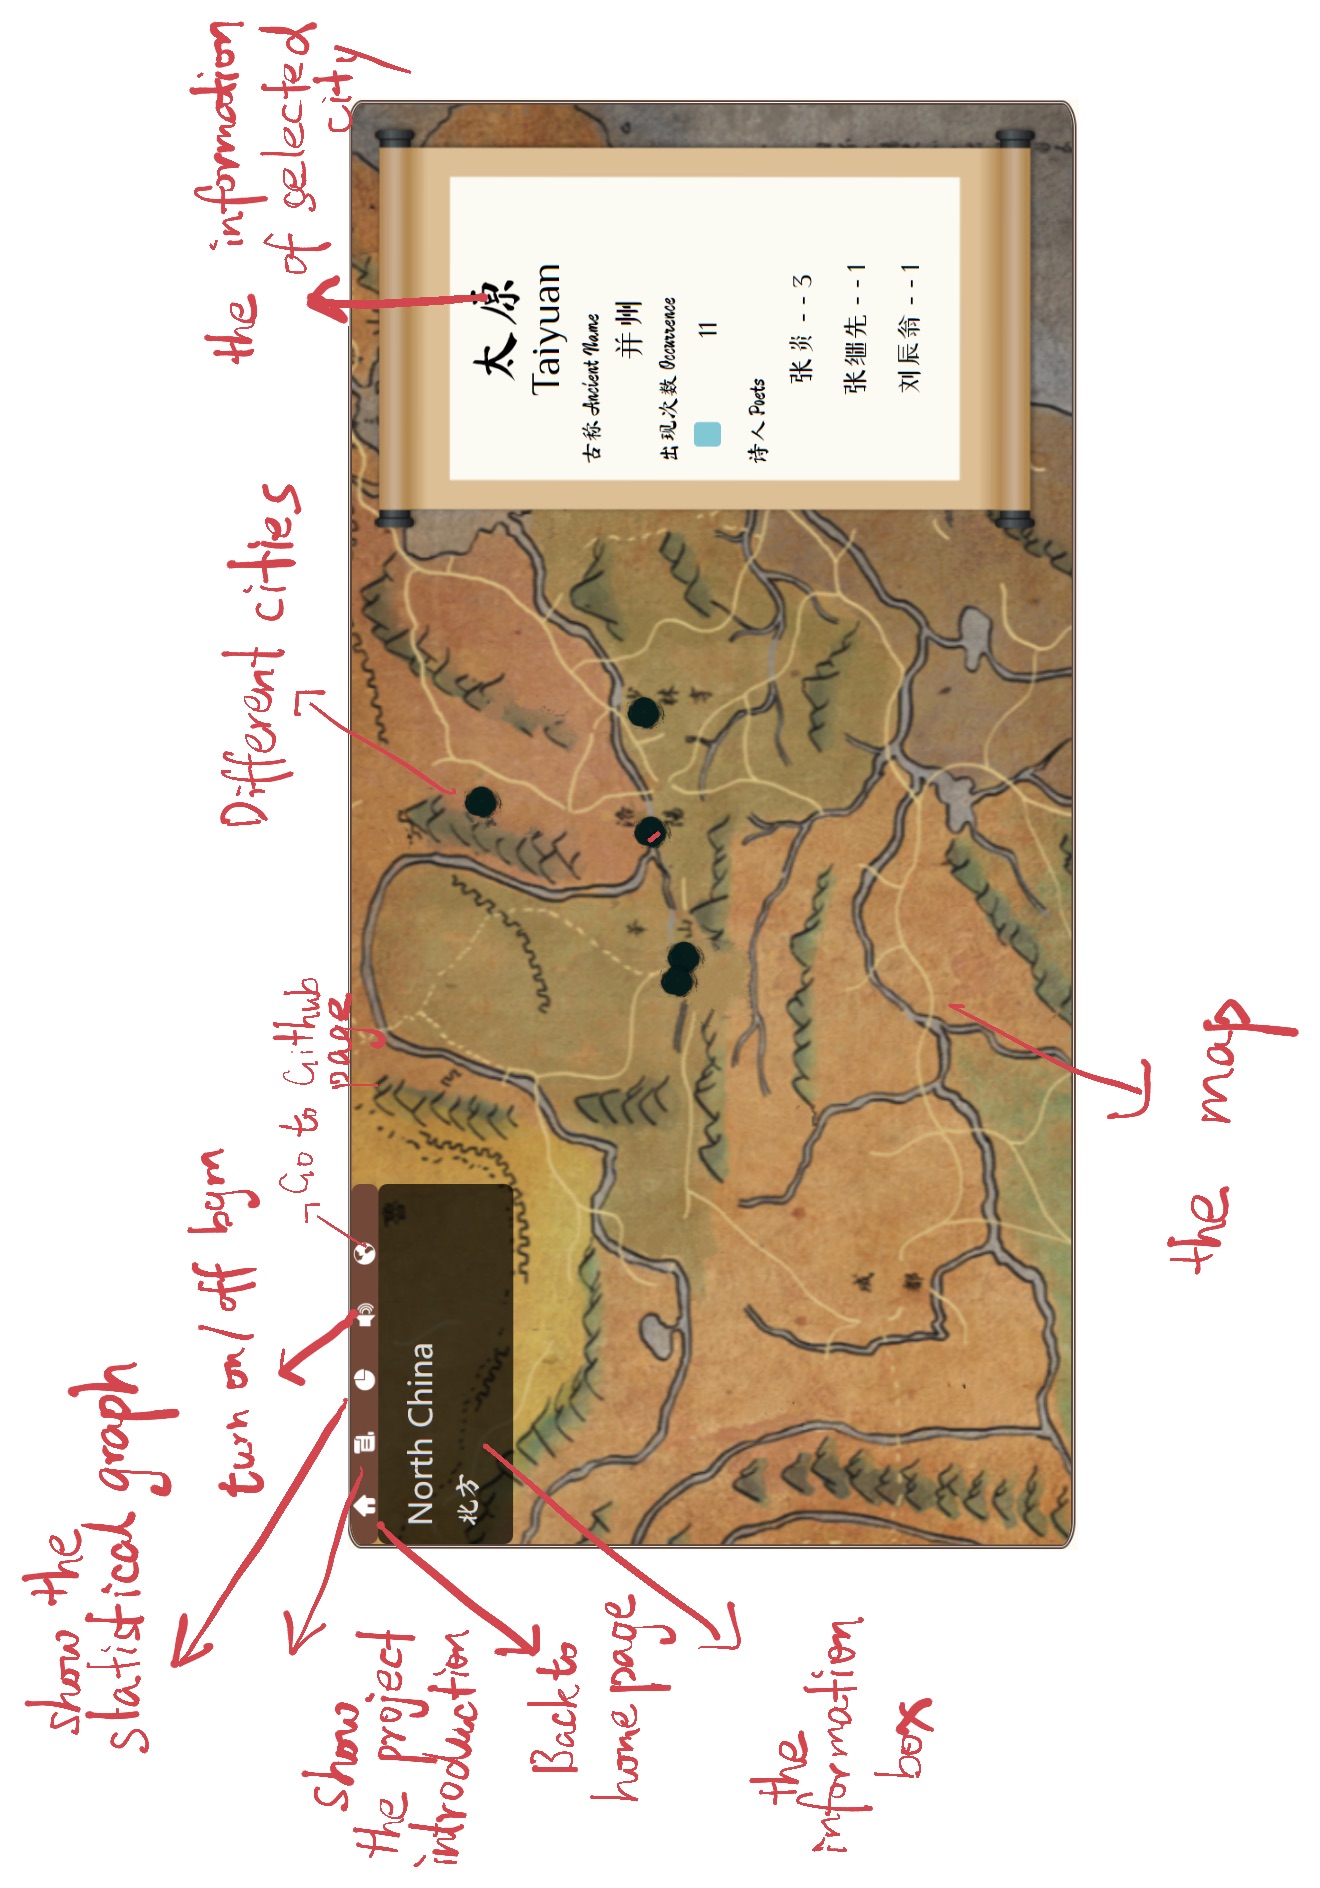 show the
statistical graph
turn on/off bgm
Go to Github
page
Different cities
the information
of selected
city
show
the project
introduction
Back to
home page
the
information
box
North China
北方
洛
陽
林
寺
山
成
都
太原
Taiyuan
古称 Ancient Name
并州
出现次数 Occurrence
11
诗人 Poets
张炎 - - 3
张继先 - - 1
刘辰翁 - - 1
the map